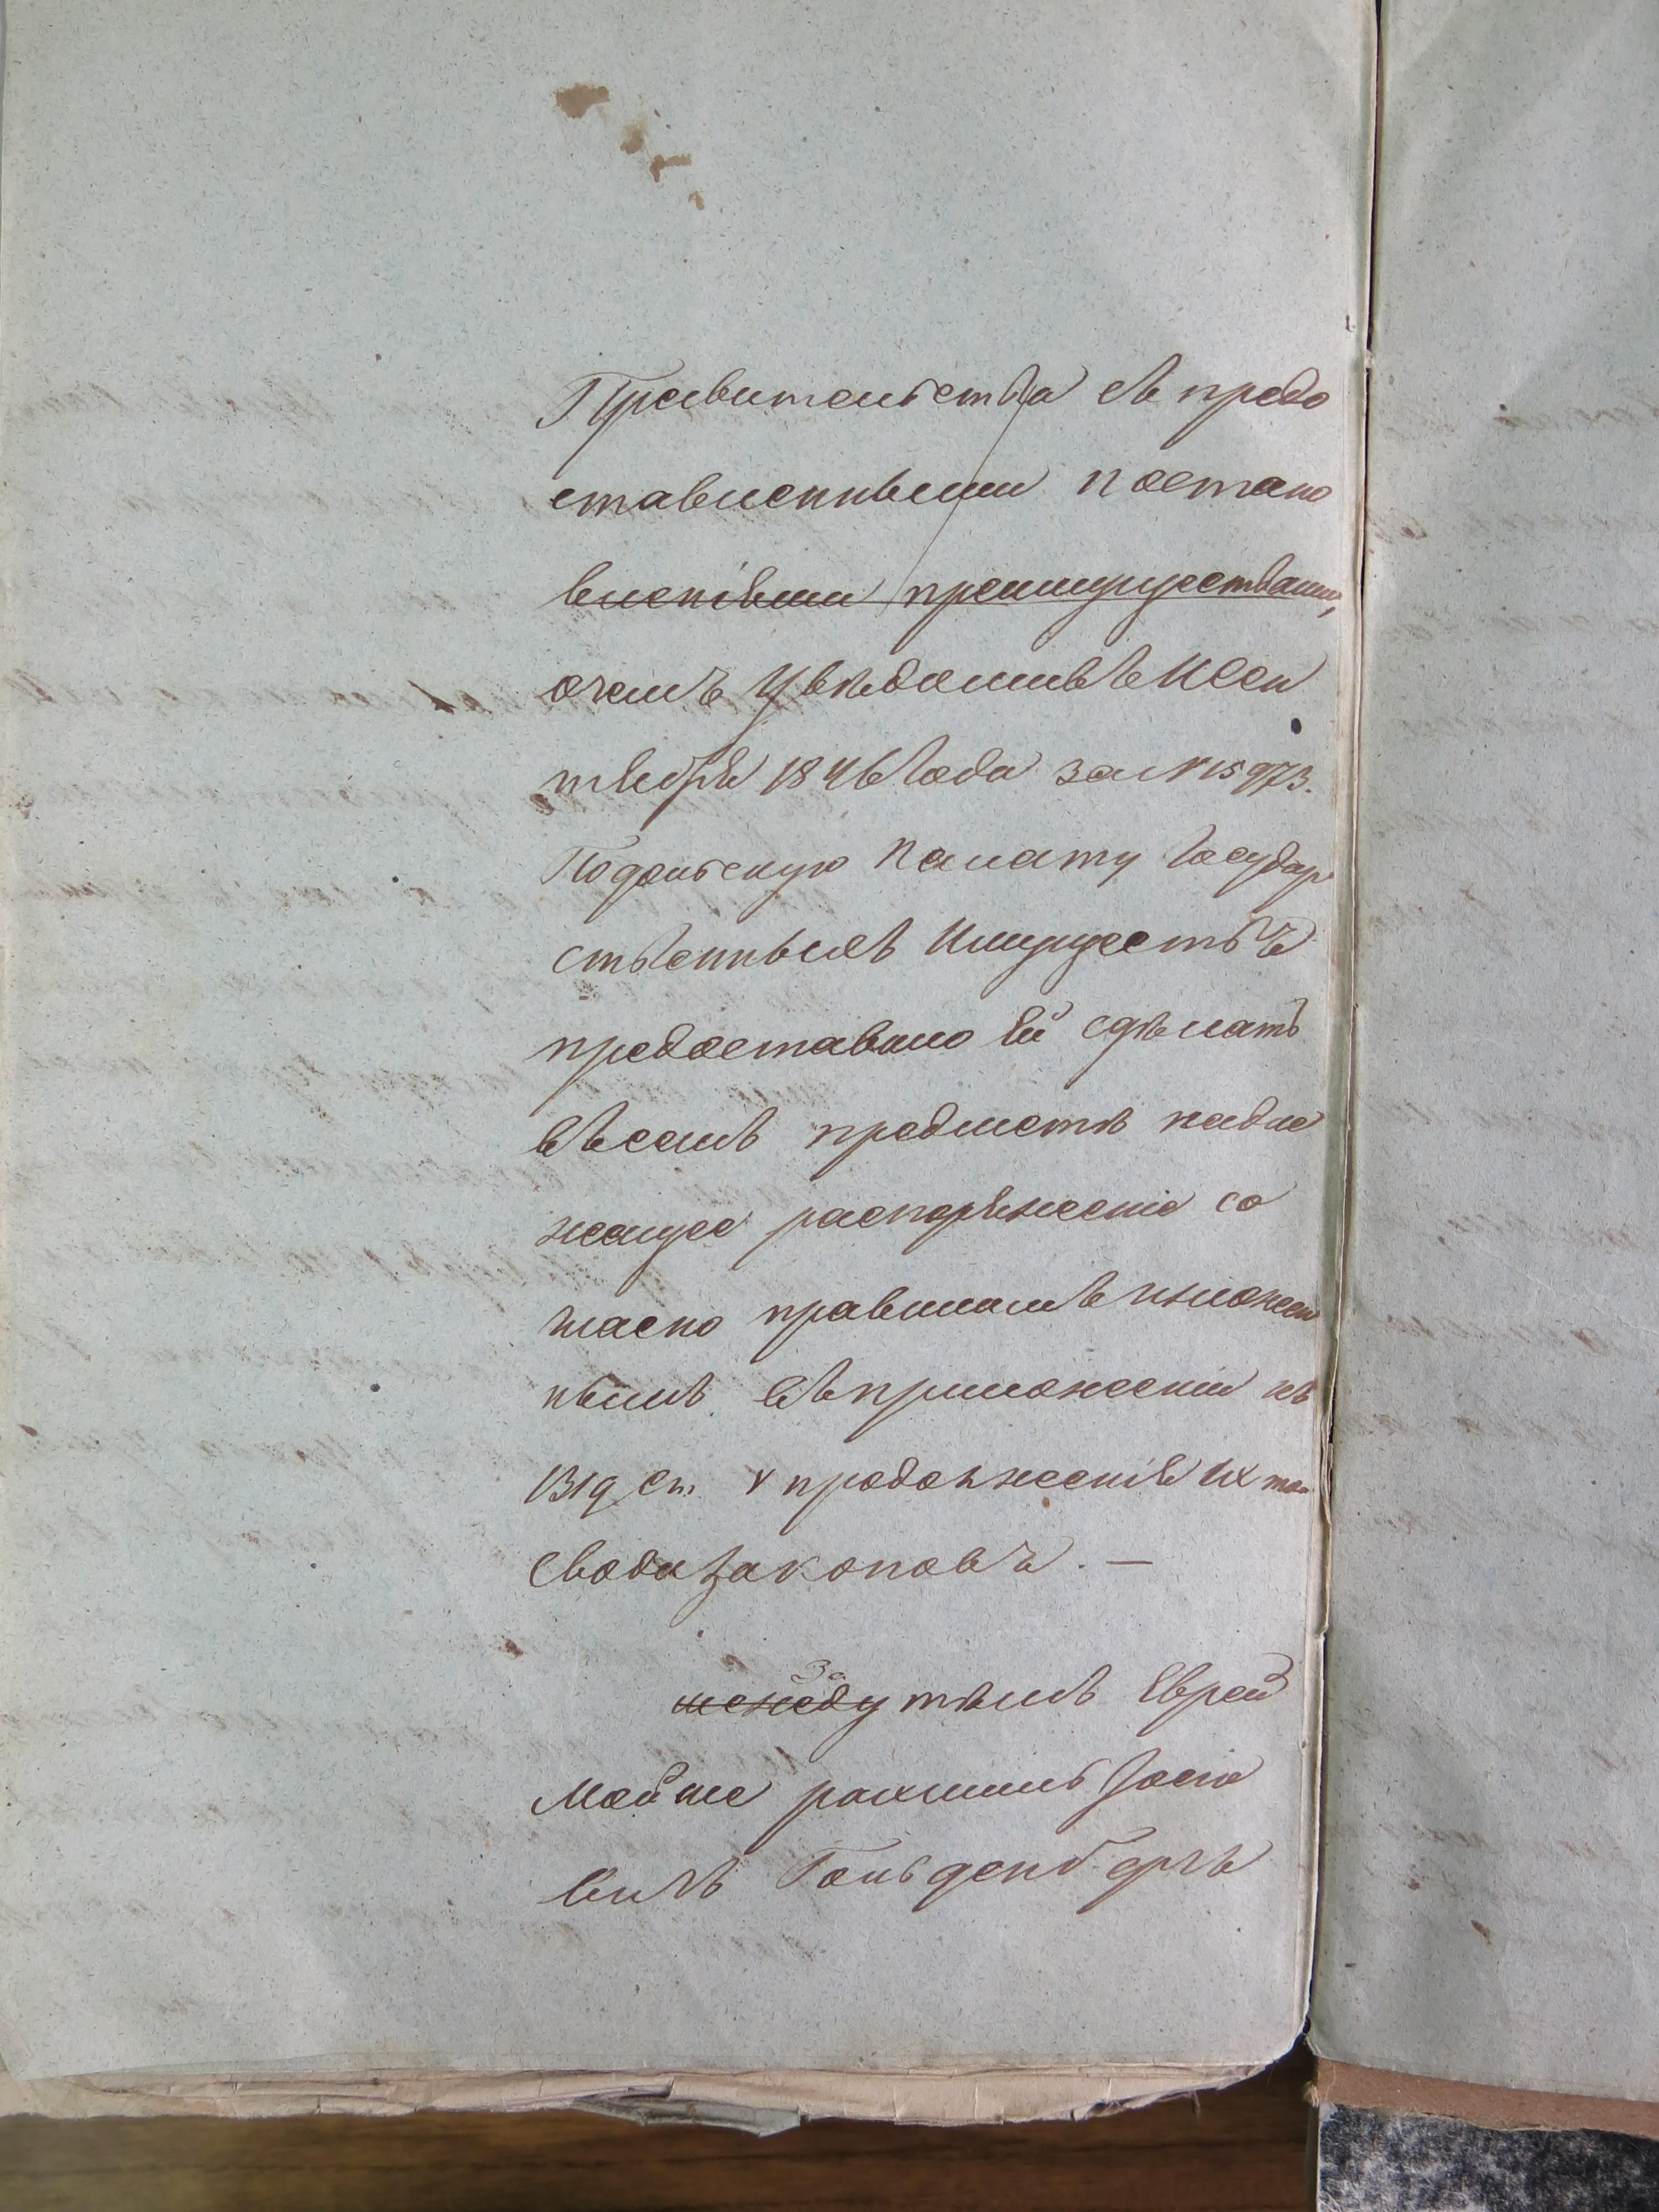 Правительства съ предо
ставленными постано
вленіями преимуществами,
очемъ увѣдомивъ 11 Сен
тября 1846 года за № 15973.
Подольскую Палату Государ
ственныхъ Имуществъ
предоставлю ей сдѣлать
въ семъ предметѣ надле
жащее распоряженіе со
гласно правиламъ изложен
нымъ въ приложеніи къ
1319 ст. V продолженія IX то.
Свода законовъ. —
между за тѣмъ Еврей
Мойше рахмиль Іосіо
вичъ Гольденбергъ